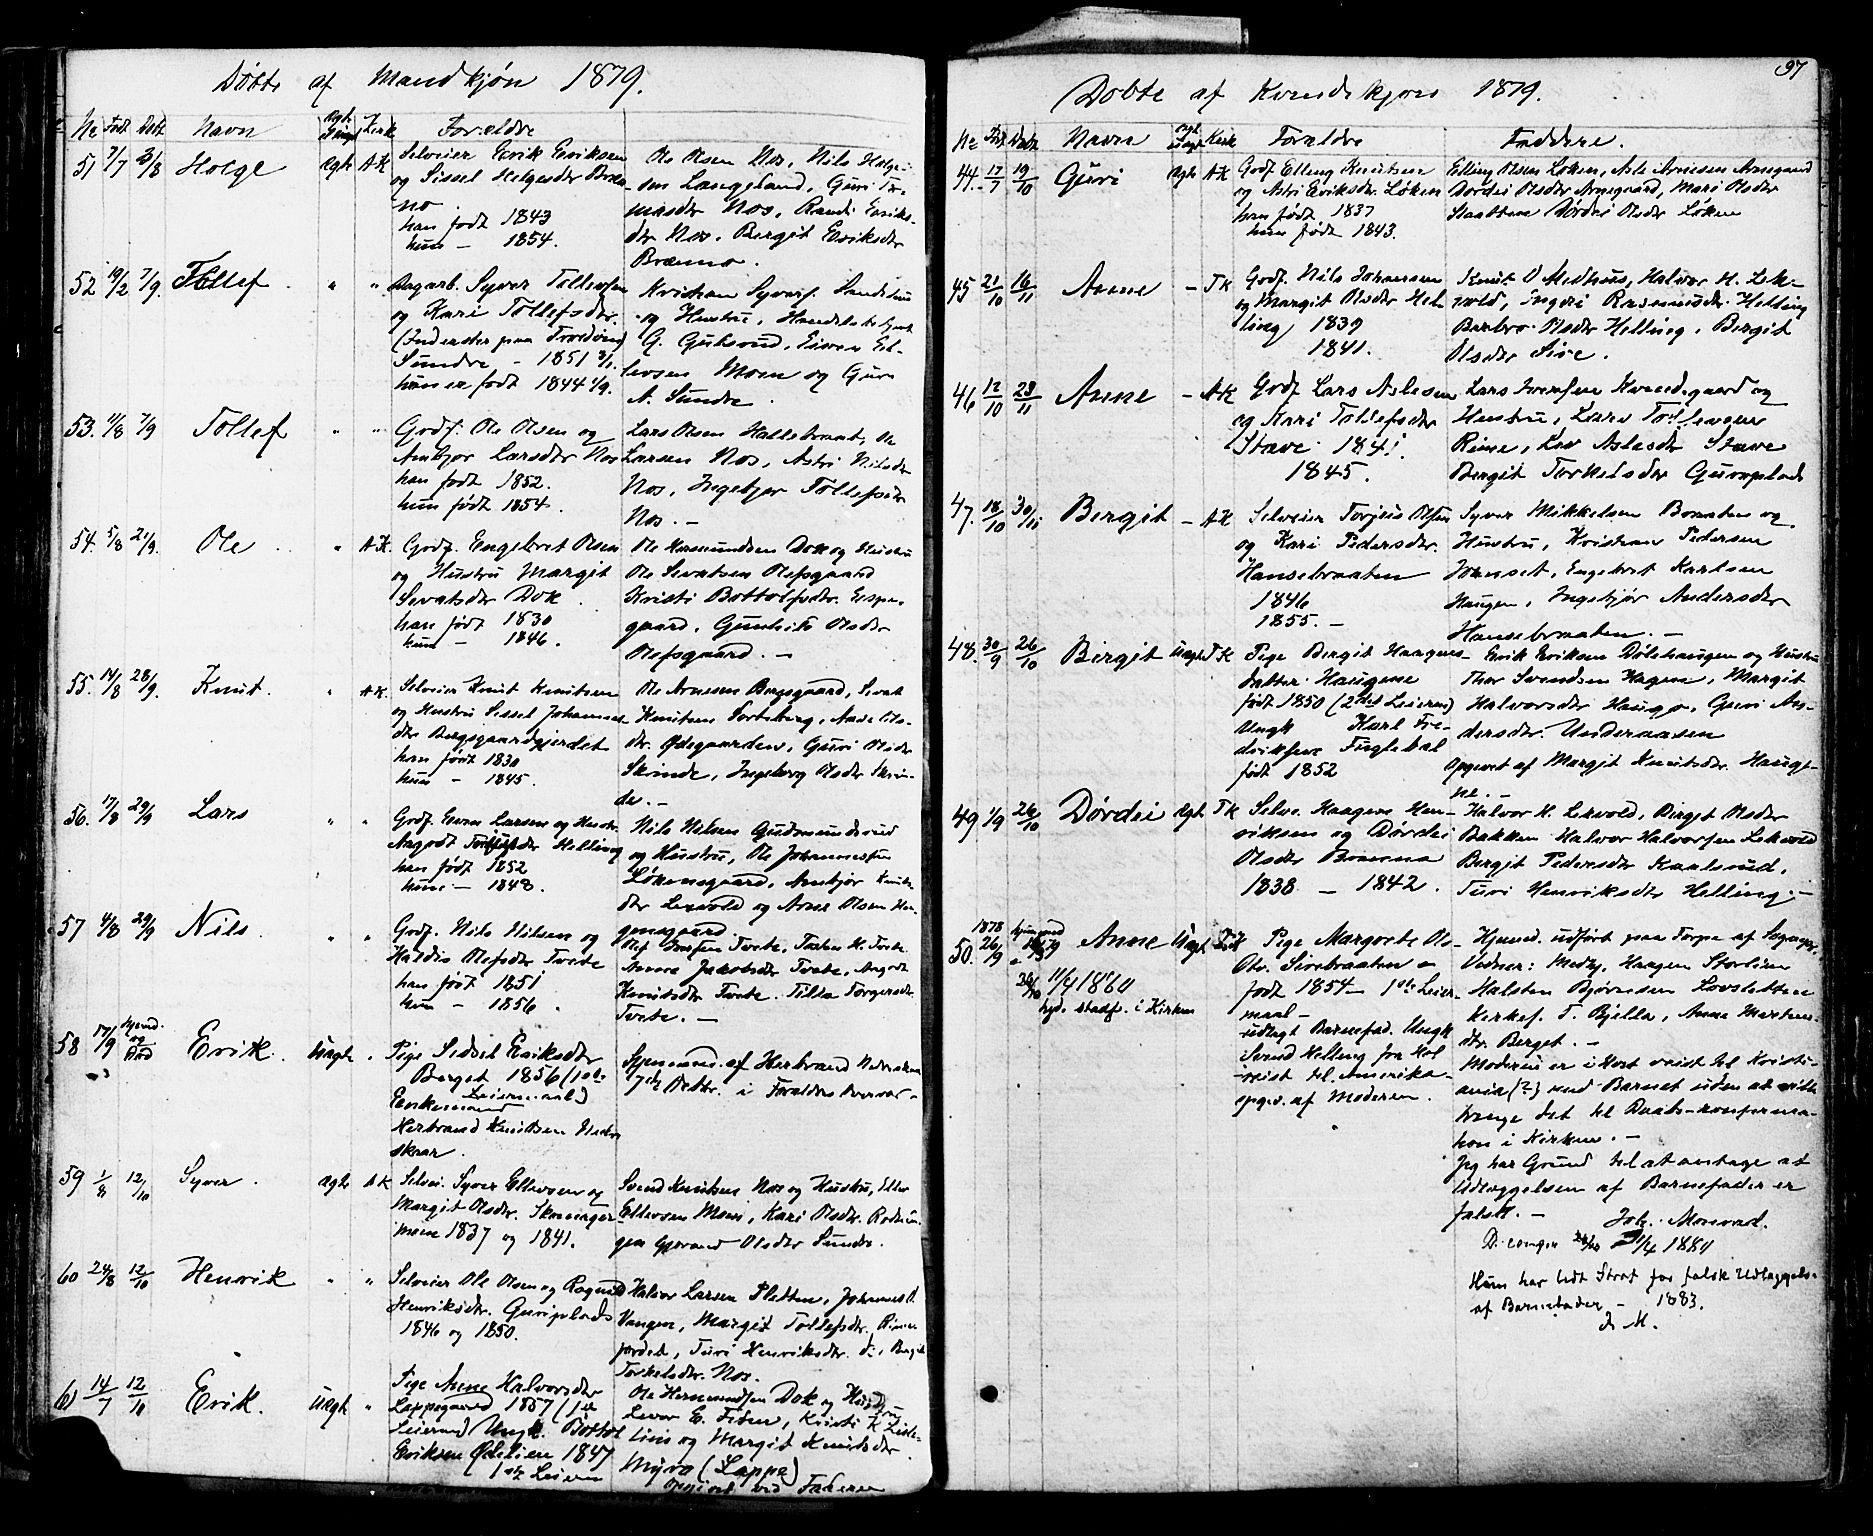 Döbte af Mandkjøn 1879.
No Født Døbt Navn Ægte Uægte Kirke Forældre
51 7/7 3/8 Holge Ægte AK Selveier Eerik Eeriksen
og Sissel Helgesdr Bræn
no.
han født 1843
hun — 1854.
Ole Olsen Nos, Nils Holge-
sen Langeland, Guri To-
masdr Nos, Randi Eeriks-
dr Nos. Bergit Eeriksdr
Brænno.
52 19/2 7/9. Tollef " " Dagarb. Syver Tollevsen
og Kari Tollefsdr.
(Inderster paa
Sundre - 1851
hun er født 1844
Kristian Syvers. Sundre
og Hustru, Handels
G. Gulsvud, Eivin Eil-
levsen Moen og Guri
A. Sundre.
53. 4/8 7/9 Tollef " " Godf. Ole Olsen og
Ambjør Larsdr Nos
han født 1852.
hun født 1854.
Lars Olsen Hallebraat, Ole
Larsen Nos, Astri Nilsdr
Nos, Ingebjør Tollefsdr
Nos. —
54. 5/8 21/9. Ole " AK. Godf. Engebret Olsen
og Hustru Margit
Sevatsdr Dok.
han født 1830
hun — 1846.
Ole Hermundsen Dok og Hustru
Ole Sevatsen Olefsgaard
Kristi Bottolfsdr. Espe-
gaard, Gunhild Olsdr
Olefsgaard. —
55. 14/8 28/9. Knut. " AK. Selveier Knut Knutsen
og Hustru Sissel Johannes
dtr Bergsgaardgjerdet
han født 1830
hun — 1845.
Ole Arnesen Bergsgaard, Sevat
Knutsen Sorteberg, Aase Ols-
dr. Ødegaarden, Guri Olsdr
Skrinde, Ingeborg Olsdr Skrin-
de. —
56. 17/8 29/9 Lars " " Godf. Even Larsen og Hustr.
Aagodt dr Helling
han født 1852
hun — 1848.
Nils Nilsen Gudmundsrud
og Hustru, Ole Johannessen
Løkensgaard, Ambjør Knuts-
dr Lexvold og Arne Olsen
gensgaard.
57 4/8 29/9 Nils " " Godf. Nils Nilsen og
Haldis Olefsdr Tveto
han født 1851
hun — 1856.
Olef Tveto, Torsten K. Tveto
Anne Jakobsdr Tveto, Aagodt
Knutsdr Tveto. Tilla Torgersdr.
Tveto. —
58 17/9 hjemd. og død Erik. Uægte " Pige Sidsel Eriksdr
Berget 1856 (1ste
Leiermaal)
Enkemand
Herbrand Knudsen Nedre
skaar.
Hjemmed. af Herbrand Nedreskaar
7de Oktbr. i Forældres overvær-
59 1/8 12/10 Syver. Ægte AK Selvei. Syver Ellevsen og
Margit Olsdr. Skaninger
moen 1837 og 1841.
Svend Knutsen Nos og Hustru, Ellev
Ellevsen Moen, Kari Olsdr. Rodnin-
gen Olsdr Sundre.
60 24/8 12/10 Henrik " " Selveier Ole Olsen og Ragnild
Henriksdr. Gureplads
1846 og 1850.
Halvor Larsen Pletten, Johannes O.
Vangen, Margit Tollefsdr.
Turi Henriksdr. do, Bergit
Torkelsdr. Nos.
61 14/7 12/10 Erik. Uægte " Pige Anne Halvorsdr
Lappegaard 1857 (1ste
Leierm) Ungk. Bottol
Eriksen Ødelien 1847
1ste Leierm
Ole Hermundsen Dok og Hustru
Levor E. , Kristi K
lien og Margit Knutsdr
Myro (Lappe)
Opgivet ved Faderen
97
Döbte af Kvindekjøn 1879.
No Født Døbt Navn Ægte Uægte Kirke Forældre Faddere.
44. 17/7 19/10 Guri Ægte AK Godf. Elling Knutsen
og Astri Eriksdr. Løken
han født 1837
hun født 1843.
Elling Olsen Løken, Asle Arnesen Arnegaard
Dordei Olsdr Arnegaard, Mari Olsdr
Dórdei Olsdr Løken
45 21/10 16/11 Anne — TK Godf. Nils Johannsen
og Margit Olsdr Hel-
ling 1839
1841.
Knut O Medhus, Halvor H. Lek-
vold, Ingeri Rasmusdr. Helling
Barbro Olsdr Helling, Bergit
Olsdr Sire.
46 12/10 23/11 Anne — AK Godf Lars Aslesen
og Kari Tollefsdr
Stave 1841.
1845.
Lars Kvindegaard og
Hustru, Lars Tollevsen
Rime, Liv Aslesdr Stave
Bergit Torkelsdr Gureplads
47. 18/10 30/11 Bergit — AK Selveier Torjeis Olsen
og Kari Pedersdr.
Hansebraaten
1846
1855. —
Syver Mikkelsen Bonaten og
Hustru, Kristian Pedersen
Jonset, Engebret Karlsen
Haugen, Ingebjør Andersdr
Hansebraaten. —
48. 30/9 26/10 Birgit Uægte TK Pige Bergit Haagens
datter Haugene
født 1850 (2det Leierm)
Ungk Karl Fre-
driksen Fuglehal
født 1852
Erik Eriksen Dölehaugen og Hustru
Thor Svendsen Hagen, Margit
Halvorsdr Hauge, Guri An-
dersdr. Underaasen
Opgivet af Margit Knutsdr. Hauge-
ne. —
49 1/9 26/10 Dórdei Ægte TK Selve. Haagen Hen-
riksen og Dórdei
Olsdr Brænno
1838 — 1842.
Halvor H. Lekvold, Birgit Olsdr
Bakken Halvor Halvorsen Lekvold
Bergit Pedersdr Kaalsrud,
Turi Henriksdr Helling. —
1878
50. 26/9 hjemmed Anne Uægte TK Pige Margrete Ols-
Dtr. Sirebraaten
født 1854 — 1ste Leier-
maal —
udlagt Barnefad. Ungk
Svend Helling fra Hol
reist til Amerika —
opgiv. af Moderen.
11/4 1880
høi. stadf. i Kirken
Hjemmed. udført paa Torpe af Sogneprst.
Vidner: Medhj. Haagen Storlien
Halsten Bjørnsen Lovsletten
Kirkes. T. Bjella, Anne Mortens-
dtr. Berget. —
Moderen er i Høst reist til Kristi-
ania (?) med Barnet uden at ville
bringe det til Daabs-konferma-
tion i Kirken. —
Jeg har Grund til at antage at
Udlæggelsen af Barnefader er
falsk. — Joh. Monrad.
11/4 1880
Hun har lidt Straf for falsk Udlæggelse
af Barnefader — 1883.
J. M.